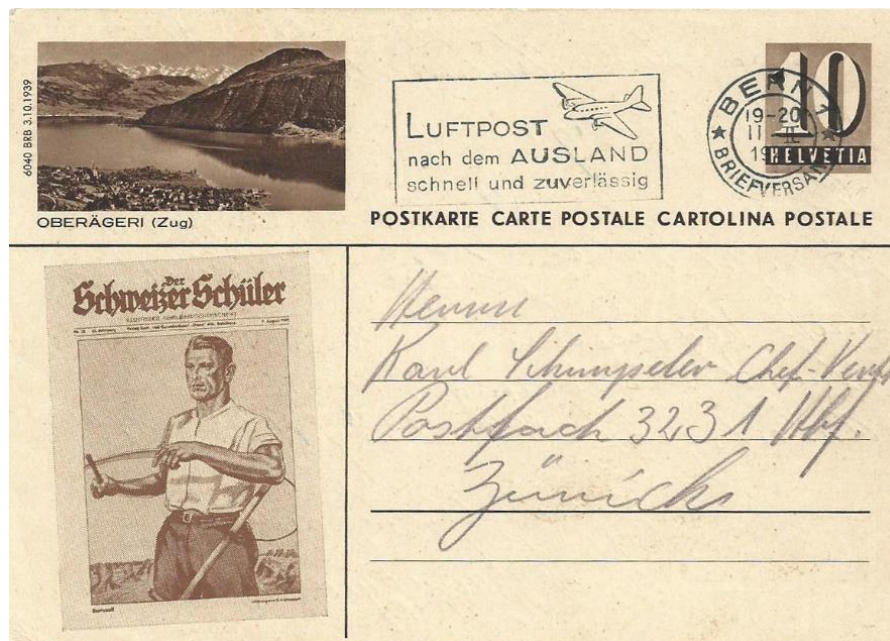 6040 BRB 3.10.1939
OBERÄGERI (Zug)
LUFTPOST
nach dem AUSLAND
schnell und zuverlässig
BERN 1
19-20
II
19
BRIEFVERSAND
10
HELVETIA
POSTKARTE CARTE POSTALE CARTOLINA POSTALE
Der
Schweizer Schüler
Herrn
Karl Schimpeler Chef-
Postfach 3231 Hbf.
Zürich